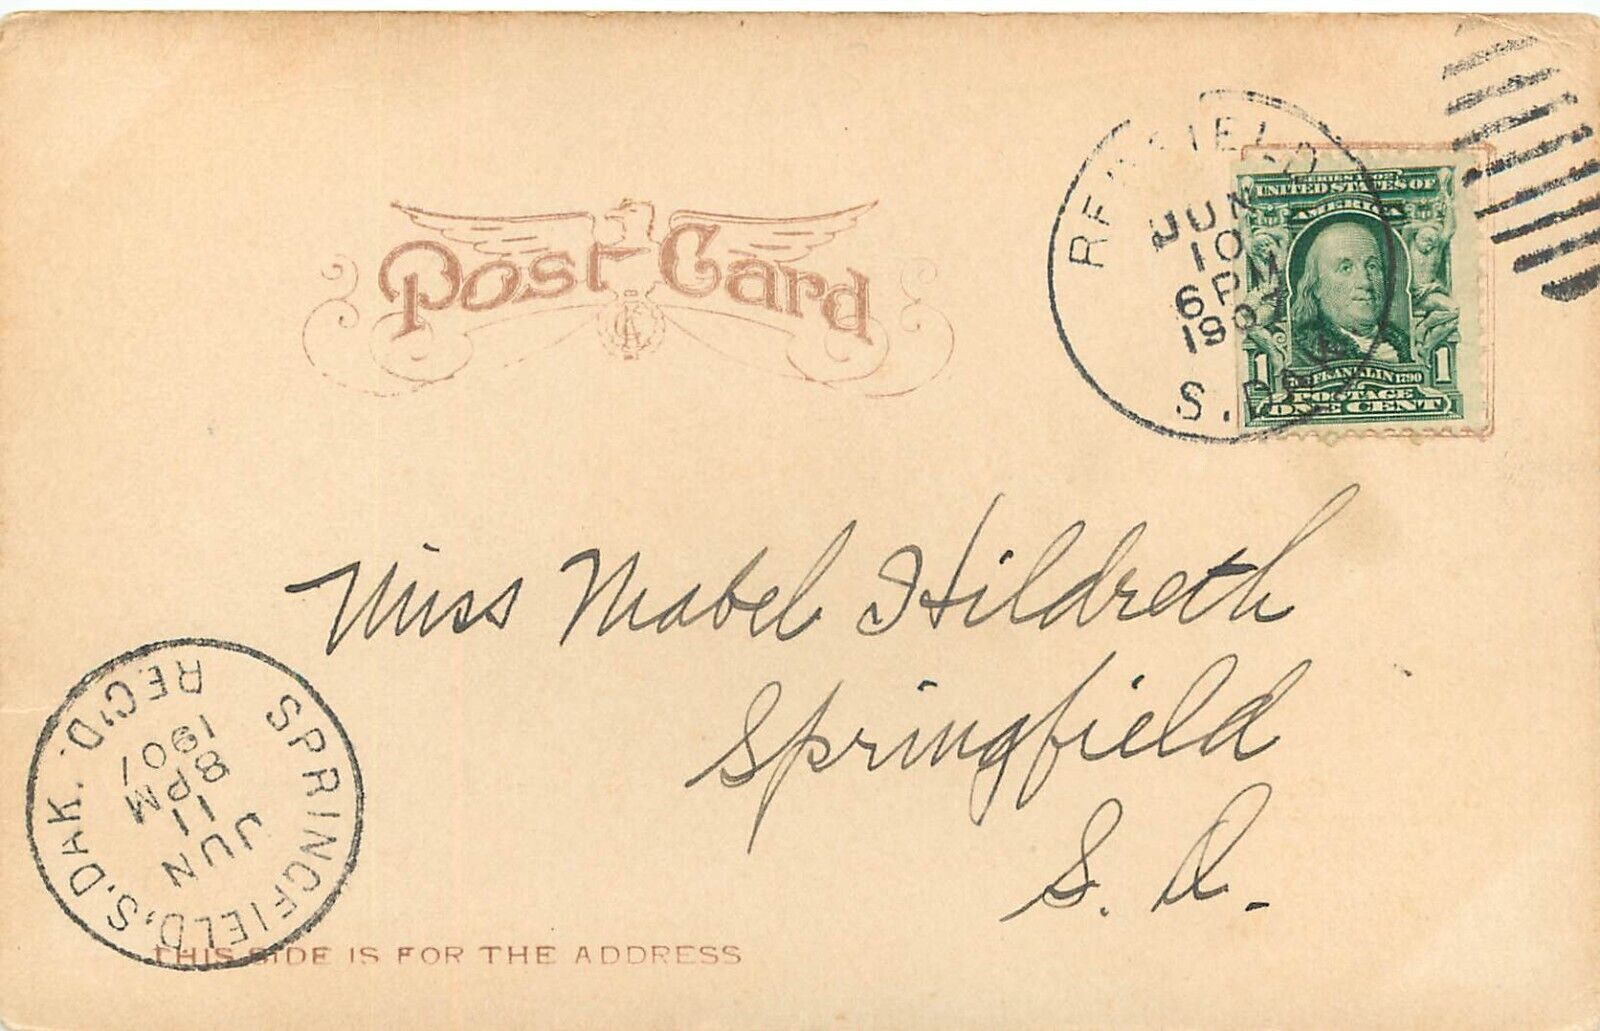 Post Card
REDFIELD
JUN
10
6 PM
1907
S. DAK.
SERIES 1902
UNITED STATES OF
AMERICA
1 FRANKLIN 1790 1
POSTAGE
ONE CENT
Miss Mabel Hildreth
Springfield
S. D.
SPRINGFIELD, S. DAK. REC'D.
JUN
11
8 PM
1907
THIS SIDE IS FOR THE ADDRESS